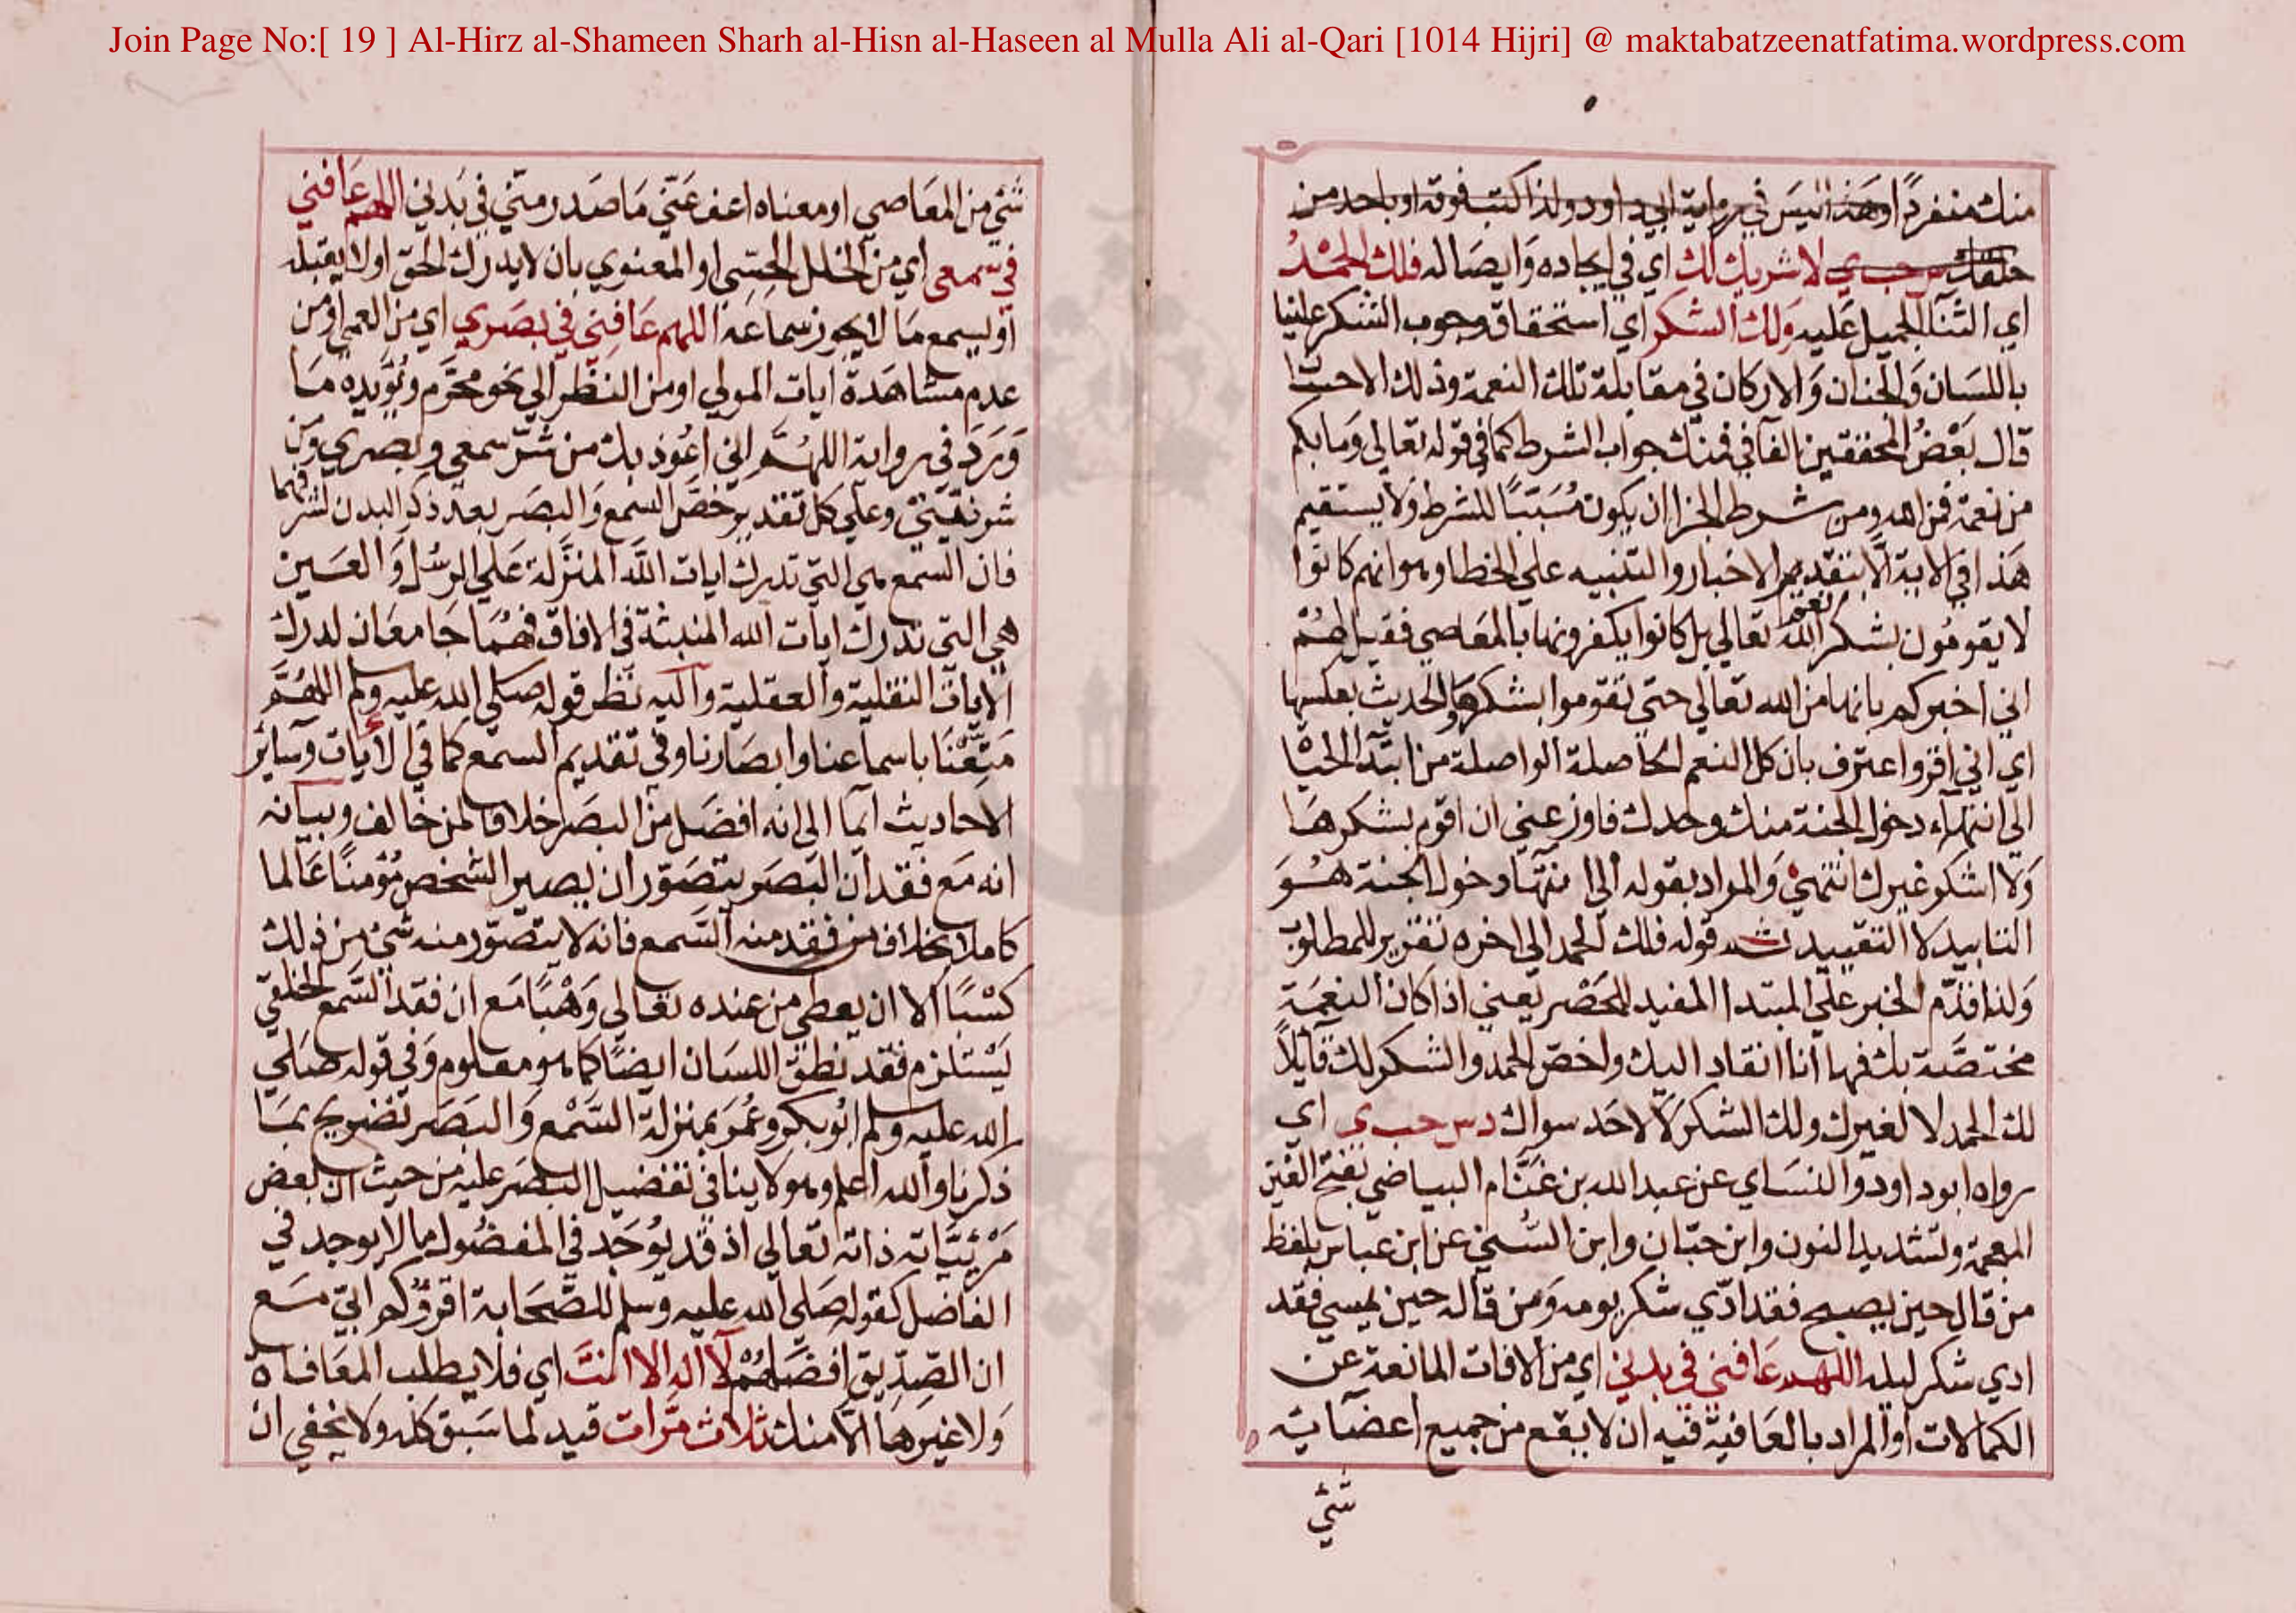 Join Page No:[ 19 ] Al-Hirz al-Shameen Sharh al-Hisn al-Haseen al Mulla Ali al-Qari [1014 Hijri] @ maktabatzeenatfatima.wordpress.com
منك منفردا او هذا ليس في رواية ابي داود ولذا كتب فوقه او باحد من
خلقك س حب ي لا شريك لك اي في ايجاده وايصاله فلك الحمد
اي الثنا الجميل عليه ولك الشكر اي استحقاق وجوب الشكر علينا
باللسان والجنان والاركان في مقابلة تلك النعمة وذلك الاحسا
قال بعض المحققين الفا في فمنك جواب الشرط كما في قوله تعالى وما بكم
من نعمة فمن الله ومن شرط الجزا ان يكون مسببا للشرط ولا يستقيم
هذا في الاية الا بتقدير الاخبار والتنبيه على الخطا وهو انهم كانوا
لا يقومون بشكر نعم الله تعالى بل كانوا يكفرونها بالمعاصي فقيل لهم
اني اخبركم بانها من الله تعالى حتى تقوموا بشكرها والحديث بعكسها
اي اني اقر واعترف بان كل النعم الحاصلة الواصلة من ابتدا الحيا
الى انتهاء دخول الجنة منك وحدك فاوزعني ان اقوم بشكرها
ولا اشكر غيرك انتهى والمراد بقوله الى انتها دخول الجنة هو
التابيد لا التقييد ثم قوله فلك الحمد الى اخره تقرير للمطلوب
ولذا قدم الخبر على المبتدا المفيد للحصر يعني اذا كان النعمة
مختصة بك فها انا انقاد اليك واخص الحمد والشكر لك قايلا
لك الحمد لا لغيرك ولك الشكر لا لاحد سواك د س حب ي اي
رواه ابو داود والنساي عن عبد الله بن غنام البياضي بفتح الغين
المعجمة وتشديد النون وابن حبان وابن السني عن ابن عباس بلفظ
من قال حين يصبح فقد ادي شكر يومه ومن قاله حين يمسي فقد
ادي شكر ليله اللهم عافني في بدني اي من الافات المانعة عن
الكمالات او المراد بالعافية فيه ان لا يقع من جميع اعضايه
شئي
شئي من المعاصي او معناه اعف عني ما صدر مني في بدني اللهم عافني
في سمعي اي من الخلل الحسي او المعنوي بان لا يدرك الحق او لا يقبله
او ليسمع ما لا يجوز سماعه اللهم عافني في بصري اي من العمى او من
عدم مشاهدة ايات المولي او من النظر الي نحو محرم ويؤيده ما
ورد في رواية اللهم اني اعوذ بك من شر سمعي وبصري ومن
شر نفسي وعلى كل تقدير خص السمع والبصر بعد ذكر البدن لشرفهما
فان السمع هي التي تدرك ايات الله المنزلة على الرسل والعين
هي التي تدرك ايات الله المنبثة في الافاق فهما جامعان لدرك
الايات النقلية والعقلية واليه نظر قوله صلي الله عليه وسلم اللهم
متعنا باسماعنا وابصارنا وفي تقديم السمع كما في الايات وساير
الاحاديث ايما الى انه افضل من البصر خلافا لمن خالف وبيانه
انه مع فقدان البصر يتصور ان يصير الشخص مؤمنا عالما
كاملا بخلاف من فقد منه السمع فانه لا يتصور منه شئ من ذلك
كسبا الا ان يعطى من عنده تعالي وهبا مع ان فقد السمع الخلقي
يستلزم فقد نطق اللسان ايضا كما هو معلوم وفي قوله صلى
الله عليه وسلم ابو بكر وعمر بمنزلة السمع والبصر تصريح بما
ذكرنا والله اعلم وهو لا ينافي تفضيل البصر عليه من حيث ان بعض
مرئياته ذاته تعالي اذ قد يوجد في المفضول ما لا يوجد في
الفاضل كقوله صلى الله عليه وسلم للصحابة اقروكم ابي مع
ان الصديق افضلهم لا اله الا انت اي فلا يطلب المعافاة
ولا غيرها الا منك ثلاث مرات قيد لما سبق كله ولا يخفي ان